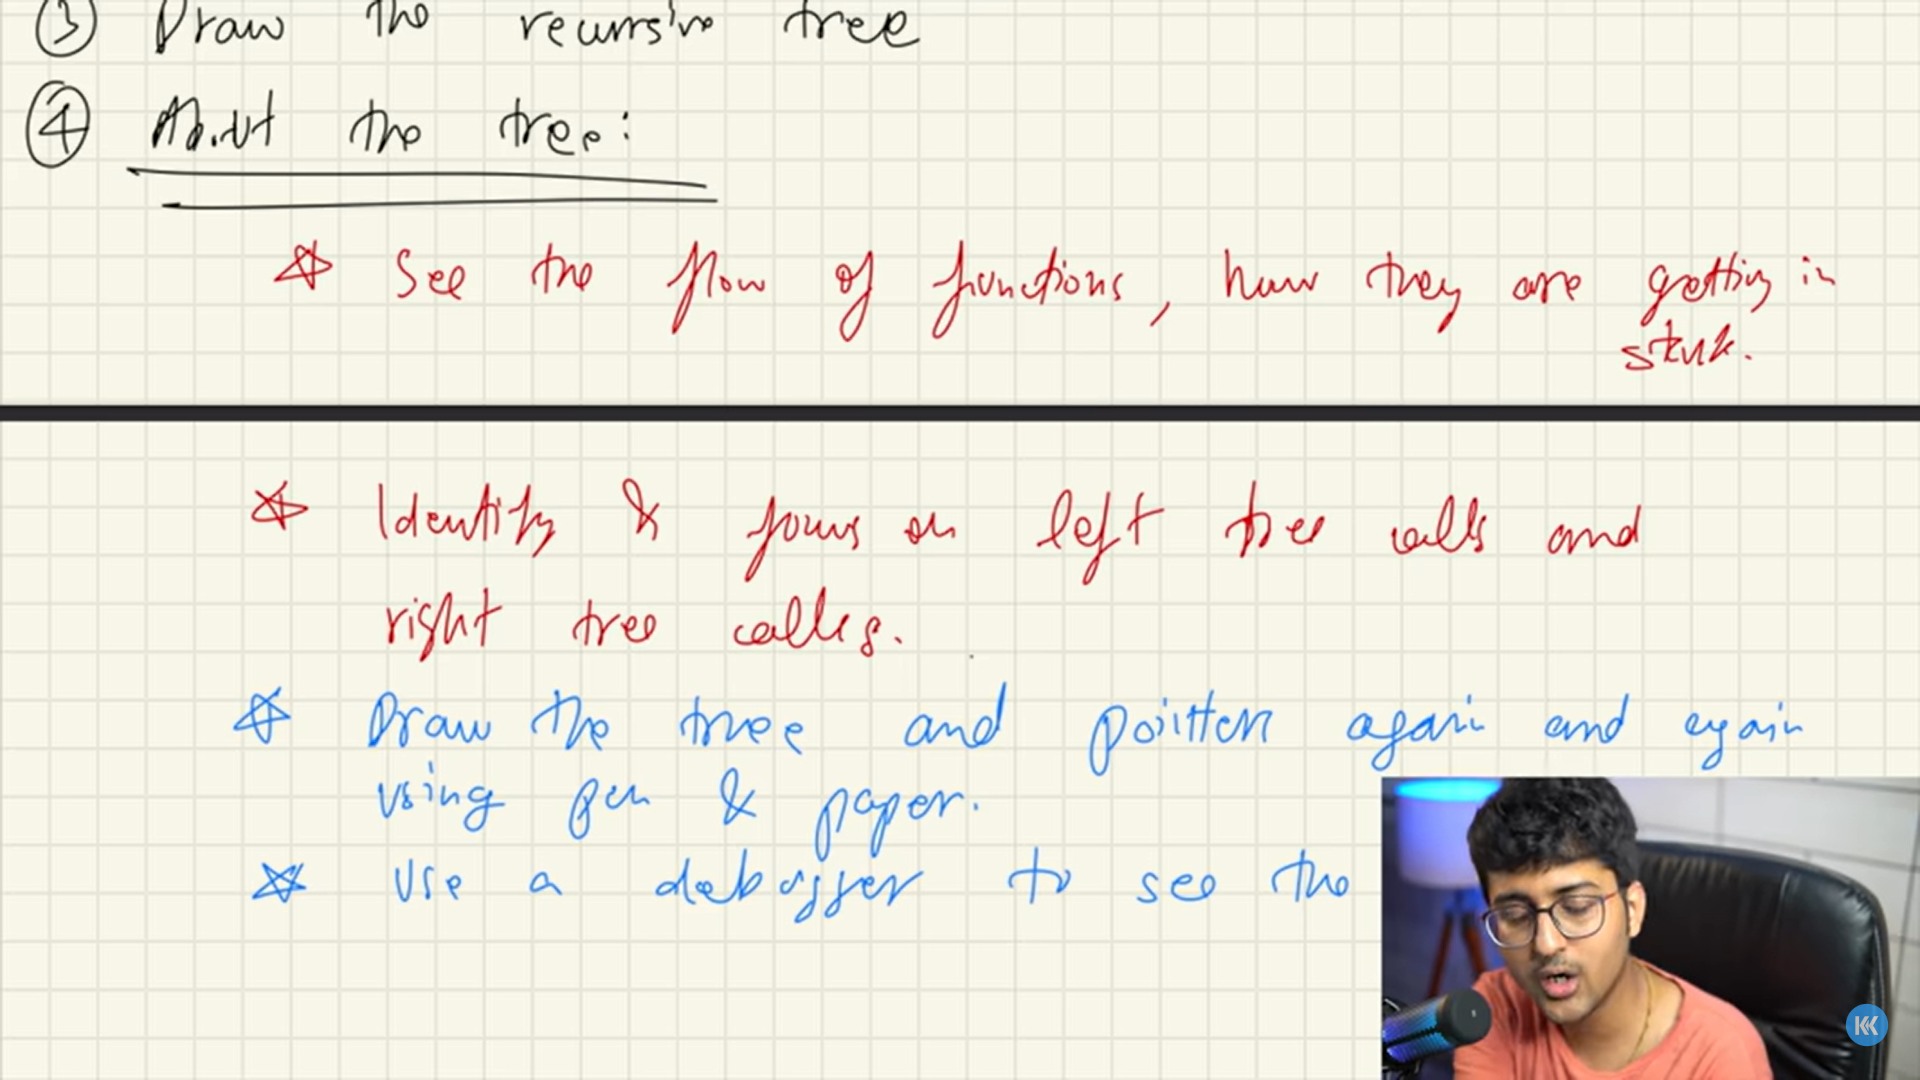 ③ Draw the recursive tree
④ About the tree:
☆ See the flow of functions, how they are getting in
stack.
☆ Identify & focus on left tree calls and
right tree calls.
☆ Draw the tree and pointers again and again
using pen & paper.
☆ Use a debugger to see the